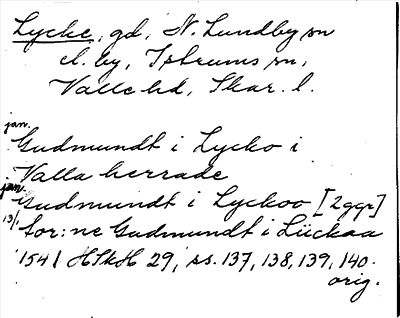 Lycke, gd, N. Lundby sn
el. by, Istrums sn,
Valle hd, Skar. l.
jan.
Gudmundt i Lycko i
Valla herrade
jan.
Gudmundt i Lyckoo [2 ggr]
13/1 for:ne Gudmundt i Lückaa
1541 HSkH 29, ss. 137, 138, 139, 140.
orig.